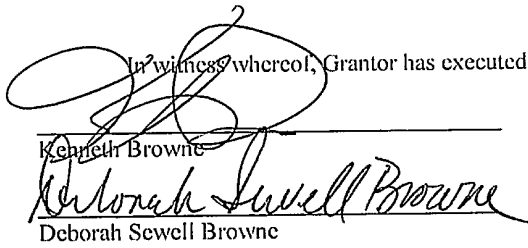 In witness whereof, Grantor has executed
Kenneth Browne
Deborah Sewell Browne
Deborah Sewell Browne